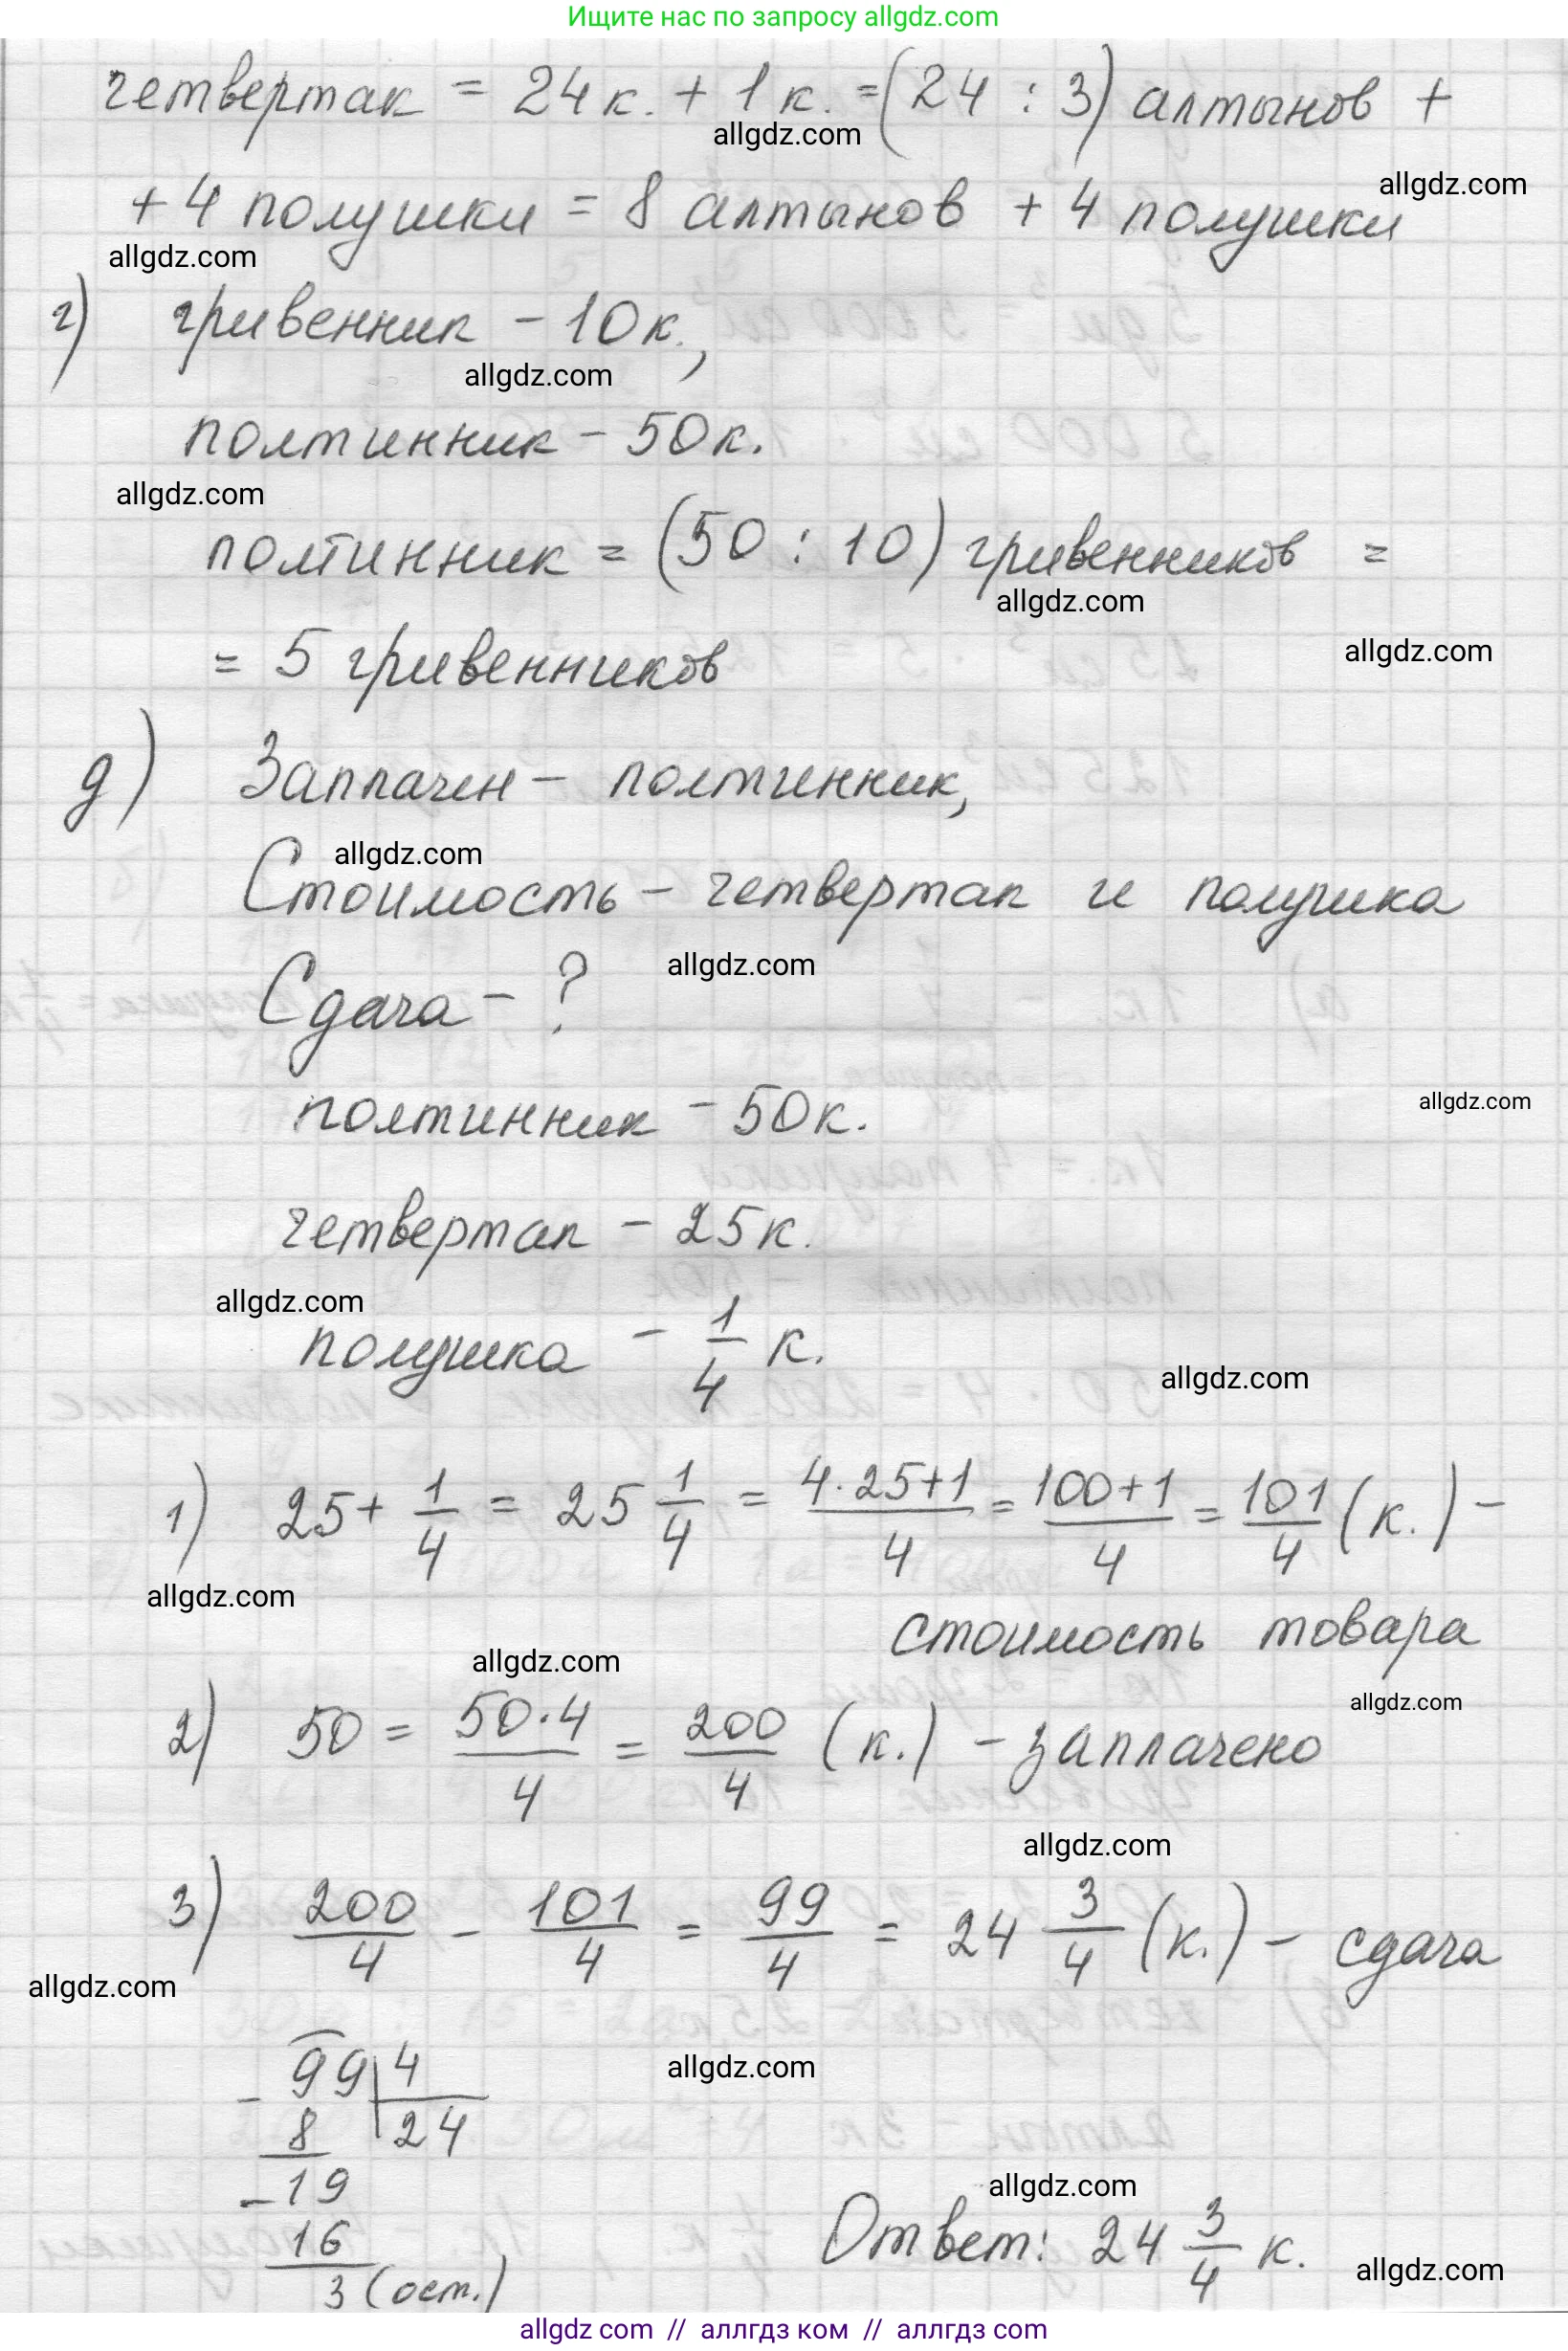 Ищите нас по запросу allgdz.com
четвертак = 24 к. + 1 к. = (24 : 3) алтынов +
allgdz.com
allgdz.com
+ 4 полушки = 8 алтынов + 4 полушки
allgdz.com
г) гривенник - 10 к.,
allgdz.com
полтинник - 50 к.
allgdz.com
полтинник = (50 : 10) гривенников =
allgdz.com
= 5 гривенников
allgdz.com
д) Заплачен - полтинник,
allgdz.com
Стоимость - четвертак и полушка
allgdz.com
Сдача - ?
полтинник - 50 к.
allgdz.com
четвертак - 25 к.
allgdz.com
полушка - 1/4 к.
allgdz.com
1) 25 + 1/4 = 25 1/4 = (4·25+1)/4 = (100+1)/4 = 101/4 (к.) -
allgdz.com
стоимость товара
allgdz.com
allgdz.com
2) 50 = (50·4)/4 = 200/4 (к.) - заплачено
allgdz.com
3) 200/4 - 101/4 = 99/4 = 24 3/4 (к.) - сдача
allgdz.com
- 99 | 4
allgdz.com
8 | 24
- 19
allgdz.com
16
Ответ: 24 3/4 к.
allgdz.com
3 (ост.)
allgdz com // аллгдз ком // аллгдз com